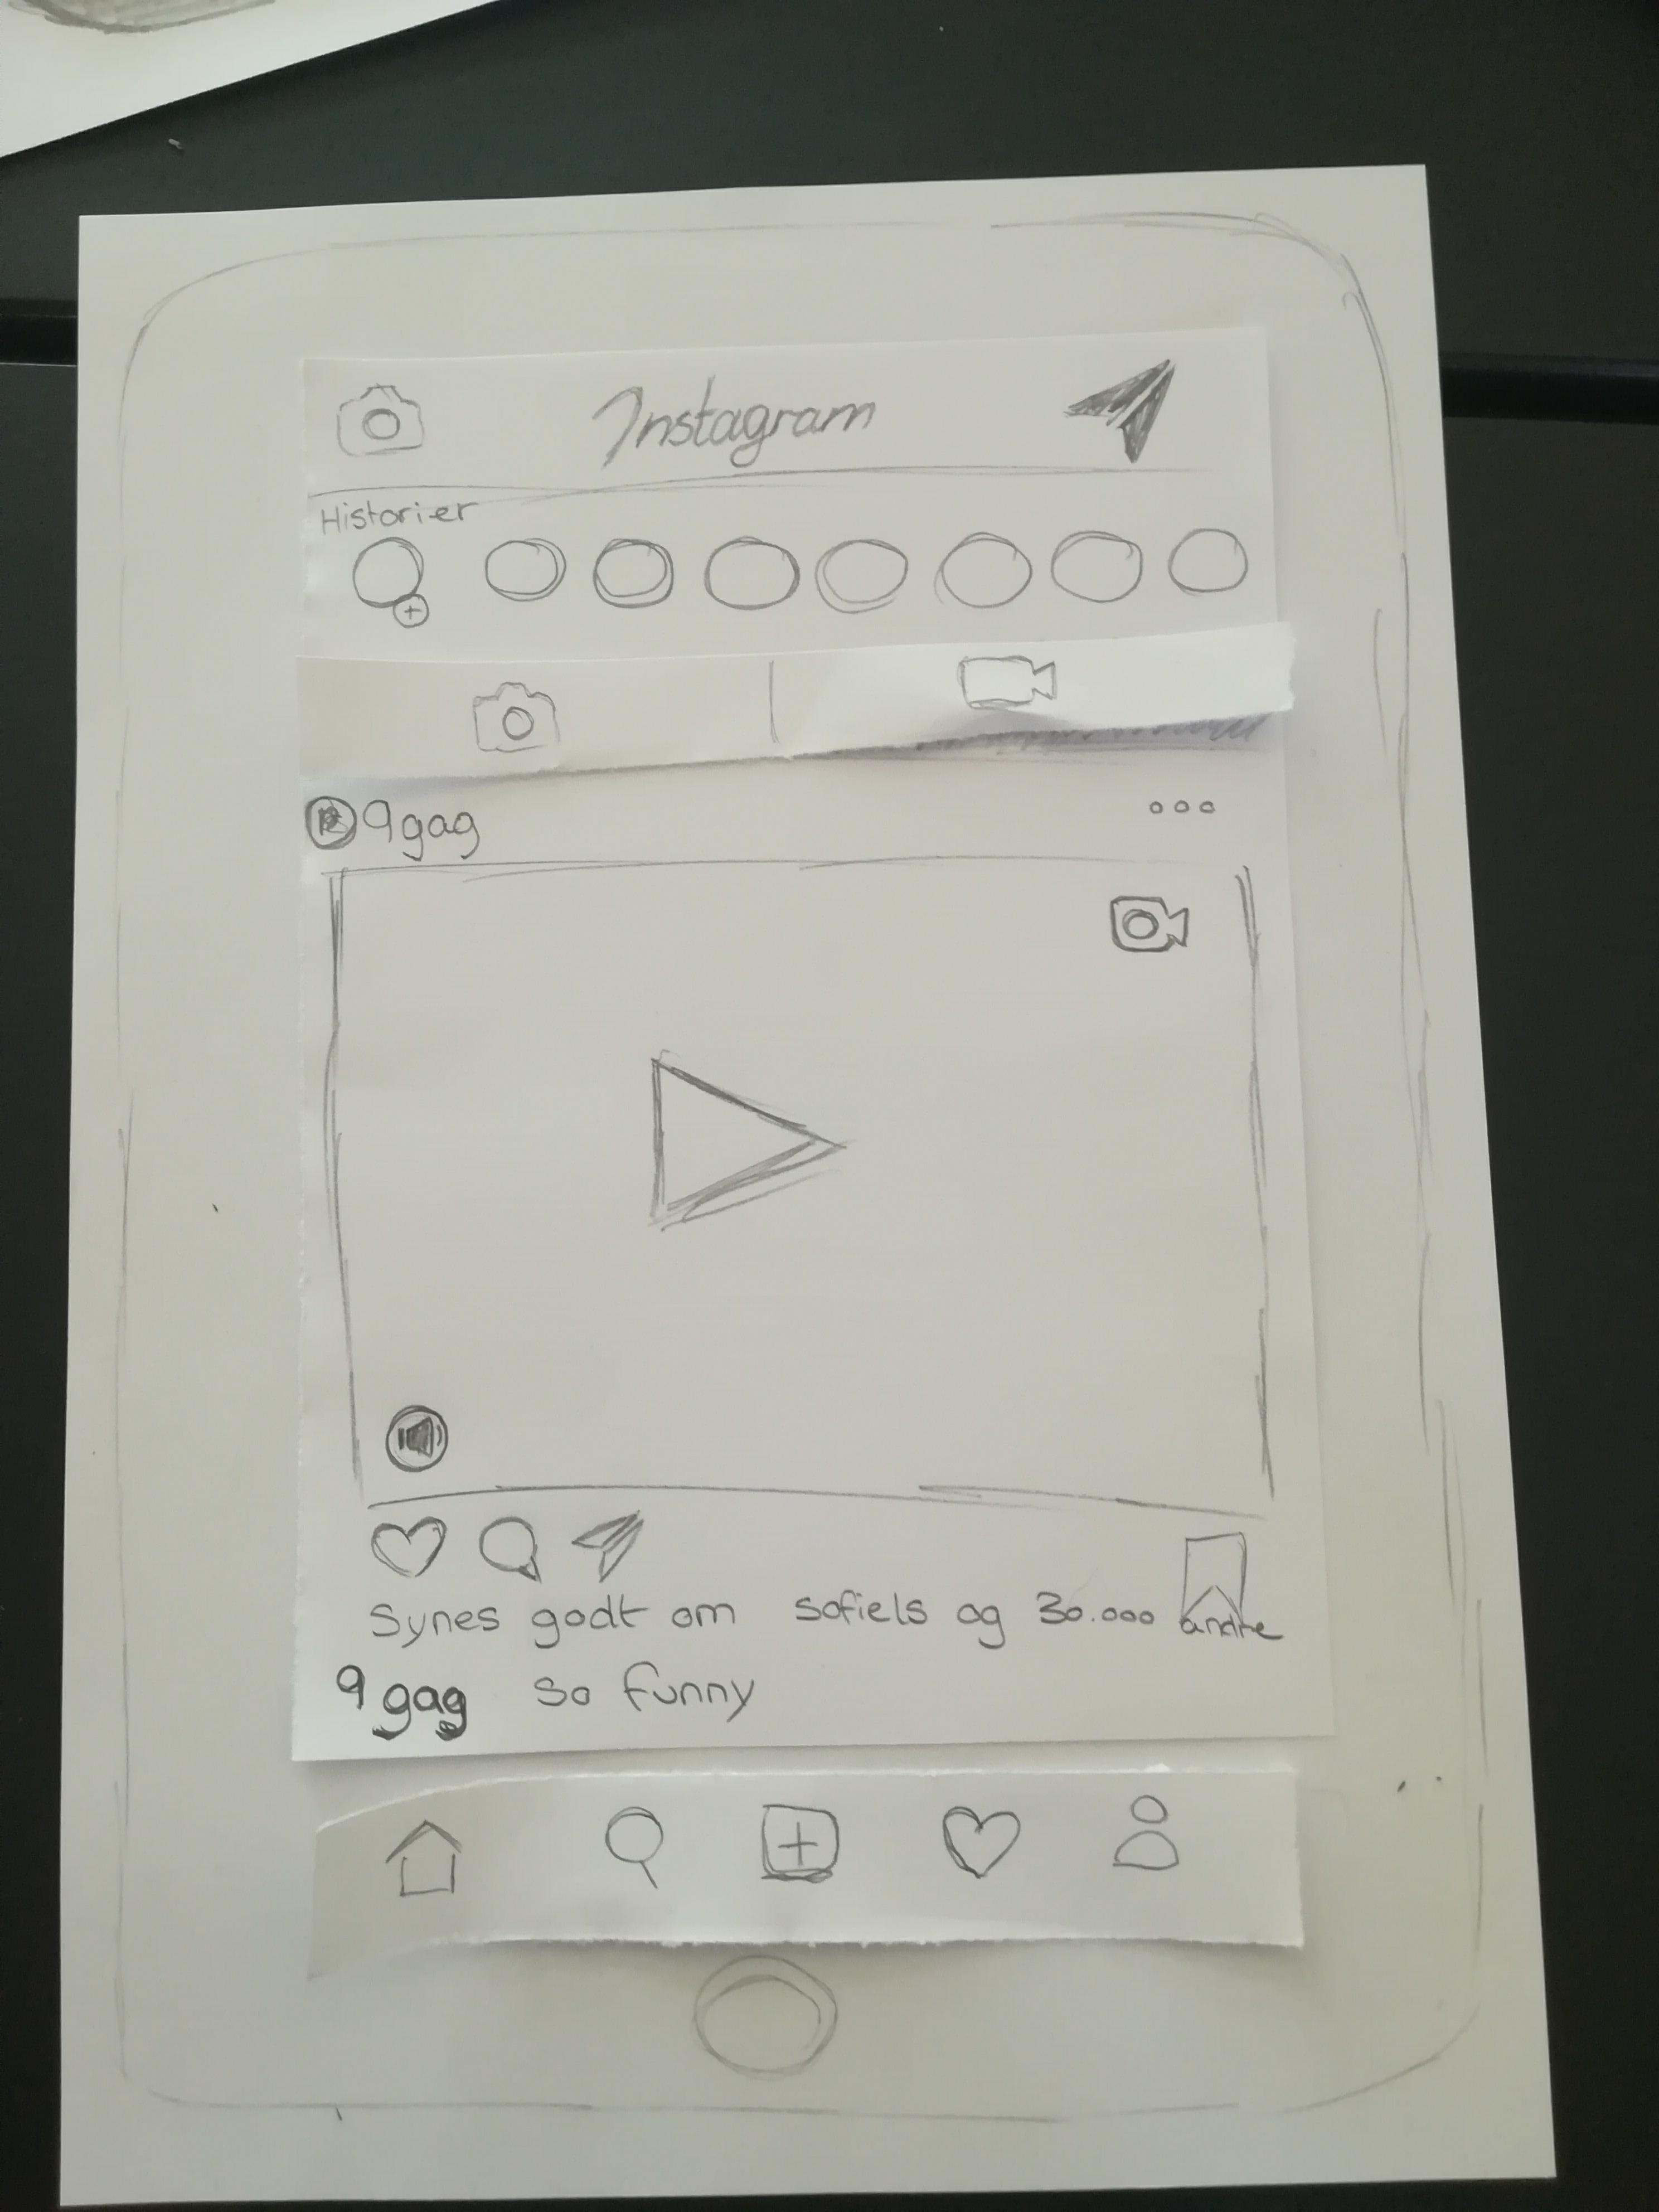 Instagram
Historier
9gag
Synes godt om sofiels og 30.000 andre
9gag so funny